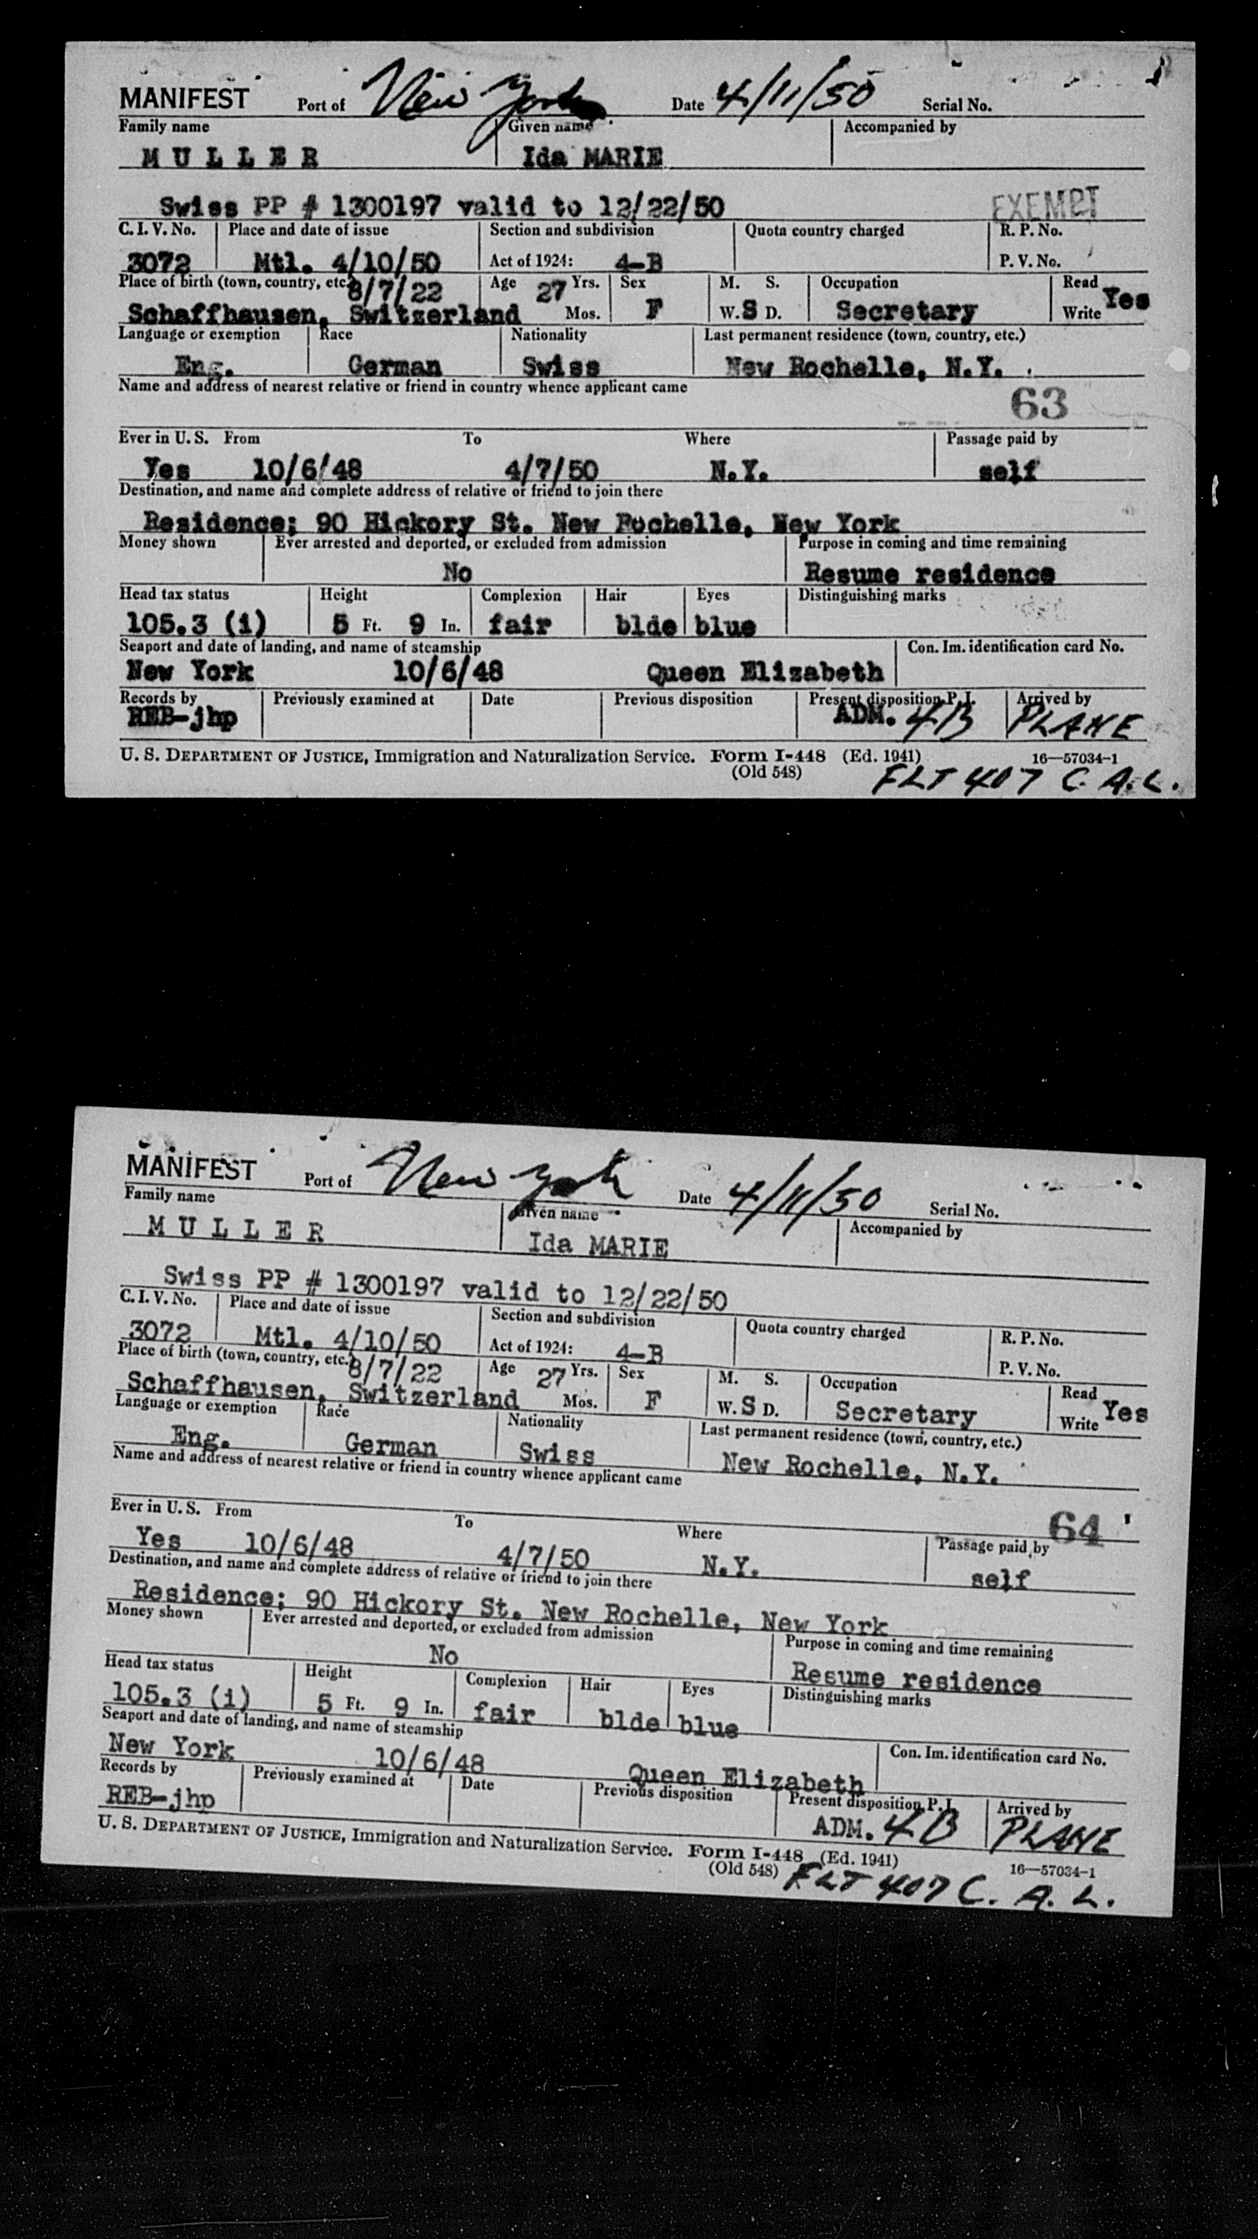 MANIFEST Port of New York Date 4/11/50 Serial No.
Family name Given name Accompanied by
MULLER Ida MARIE
Swiss PP # 1300197 valid to 12/22/50 EXEMPT
C. I. V. No. Place and date of issue Section and subdivision Quota country charged R. P. No.
3072 Mtl. 4/10/50 Act of 1924: 4-B P. V. No.
Place of birth (town, country, etc.) 8/7/22 Age 27 Yrs. Sex M. S. Occupation Read
Schaffhausen, Switzerland Mos. F W. S D. Secretary Write Yes
Language or exemption Race Nationality Last permanent residence (town, country, etc.)
Eng. German Swiss New Rochelle, N.Y.
Name and address of nearest relative or friend in country whence applicant came
63
Ever in U. S. From To Where Passage paid by
Yes 10/6/48 4/7/50 N.Y. self
Destination, and name and complete address of relative or friend to join there
Residence; 90 Hickory St. New Rochelle, New York
Money shown Ever arrested and deported, or excluded from admission Purpose in coming and time remaining
No Resume residence
Head tax status Height Complexion Hair Eyes Distinguishing marks
105.3 (i) 5 Ft. 9 In. fair blde blue
Seaport and date of landing, and name of steamship Con. Im. identification card No.
New York 10/6/48 Queen Elizabeth
Records by Previously examined at Date Previous disposition Present disposition P. I. Arrived by
REB-jhp ADM. 4B PLANE
U. S. DEPARTMENT OF JUSTICE, Immigration and Naturalization Service. Form I-448 (Ed. 1941) 16—57034-1
(Old 548) FLT 407 C. A. L.
MANIFEST Port of New York Date 4/11/50 Serial No.
Family name Given name Accompanied by
MULLER Ida MARIE
Swiss PP # 1300197 valid to 12/22/50
C. I. V. No. Place and date of issue Section and subdivision Quota country charged R. P. No.
3072 Mtl. 4/10/50 Act of 1924: 4-B P. V. No.
Place of birth (town, country, etc.) 8/7/22 Age 27 Yrs. Sex M. S. Occupation Read
Schaffhausen, Switzerland Mos. F W. S D. Secretary Write Yes
Language or exemption Race Nationality Last permanent residence (town, country, etc.)
Eng. German Swiss New Rochelle, N.Y.
Name and address of nearest relative or friend in country whence applicant came
64
Ever in U. S. From To Where Passage paid by
Yes 10/6/48 4/7/50 N.Y. self
Destination, and name and complete address of relative or friend to join there
Residence; 90 Hickory St. New Rochelle, New York
Money shown Ever arrested and deported, or excluded from admission Purpose in coming and time remaining
No Resume residence
Head tax status Height Complexion Hair Eyes Distinguishing marks
105.3 (i) 5 Ft. 9 In. fair blde blue
Seaport and date of landing, and name of steamship Con. Im. identification card No.
New York 10/6/48 Queen Elizabeth
Records by Previously examined at Date Previous disposition Present disposition P. I. Arrived by
REB-jhp ADM. 4B PLANE
U. S. DEPARTMENT OF JUSTICE, Immigration and Naturalization Service. Form I-448 (Ed. 1941) 16—57034-1
(Old 548) FLT 407 C. A. L.